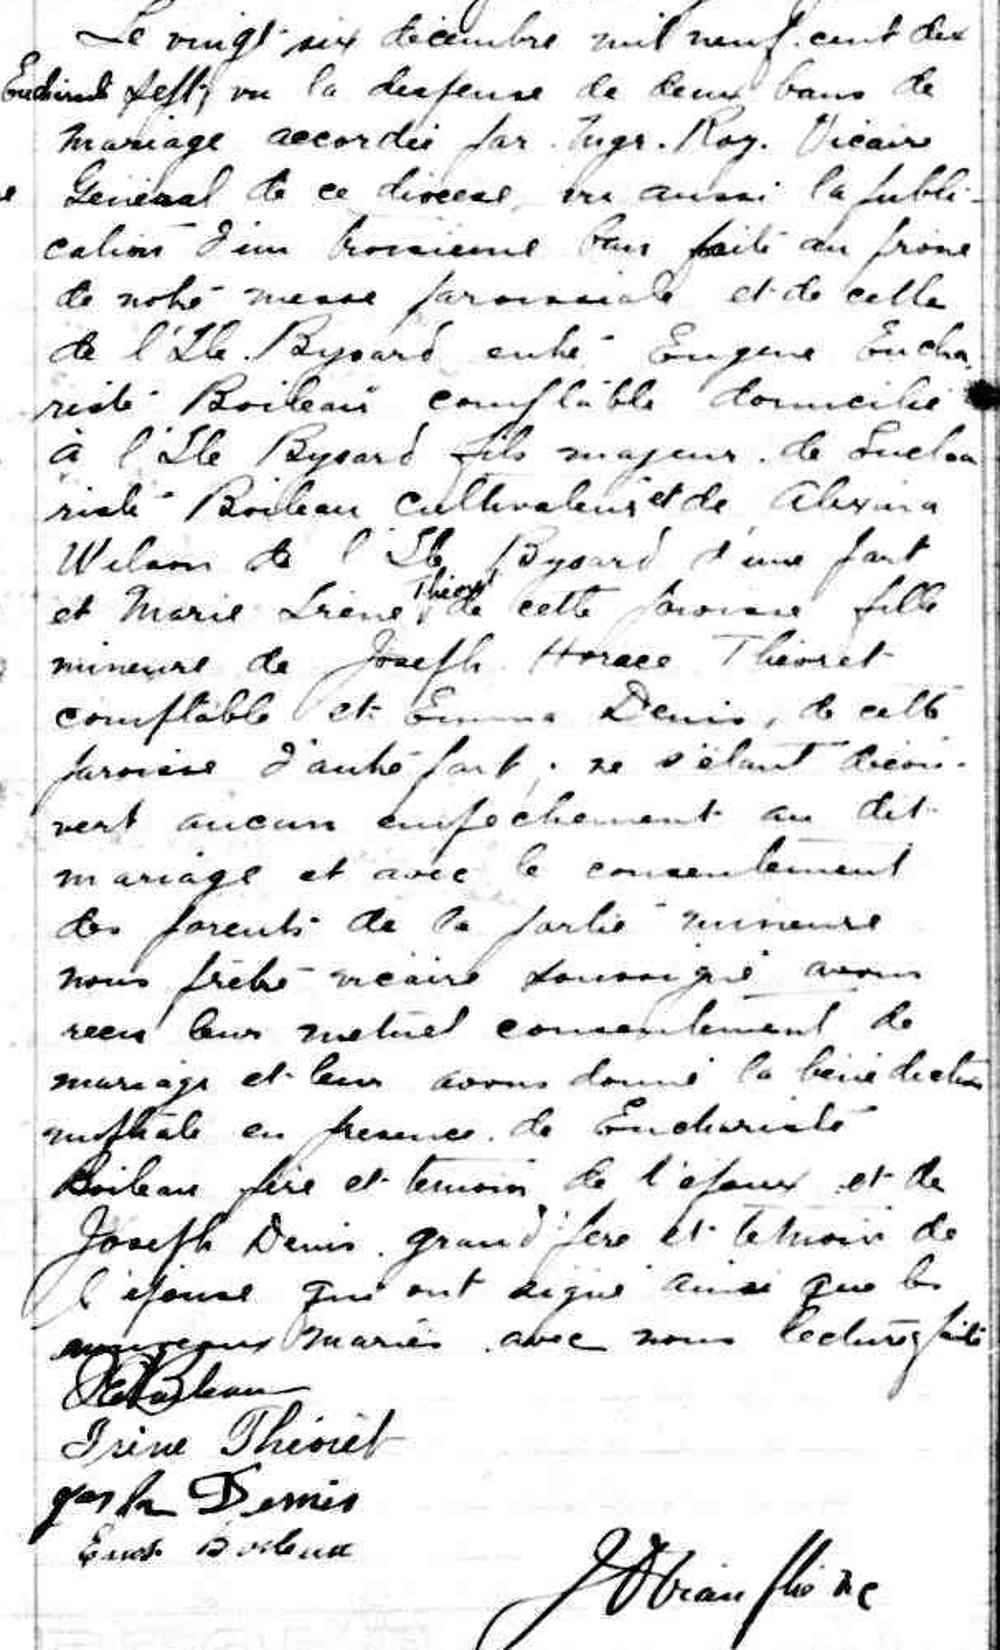 Le vingt-six décembre mil neuf cent dix
sept, vu la dispense de deux bans de
mariage accordée par Mgr. Roy. Vicaire
Général de ce diocèse, vu aussi la publi-
cation d'un troisième ban faite au prône
de notre messe paroissiale et de celle
de l'Ile Bysard entre Eugene Eucha
riste Boileau comptable domicilié
à l'Ile Bysard fils majeur de Eucha
riste Boileau cultivateur et de Alexina
Wilson de l'Ile Bysard d'une part
et Marie Irène Théoret de cette paroisse fille
mineure de Joseph Horace Théoret
comptable et Emma Denis, de cette
paroisse d'autre part; ne s'étant décou-
vert aucun empêchement au dit
mariage et avec le consentement
des parents de la partie mineure
nous prêtre vicaire soussigné avons
recu leur mutuel consentement de
mariage et leur avons donné la bénédiction
nuptiale en presence de Euchariste
Boileau père et temoin de l'époux et de
Joseph Denis grand'père et temoin de
l'épouse qui ont signé ainsi que les
nouveaux mariés avec nous lecture faite
Irène Théorêt
Denis
Euch Boileau